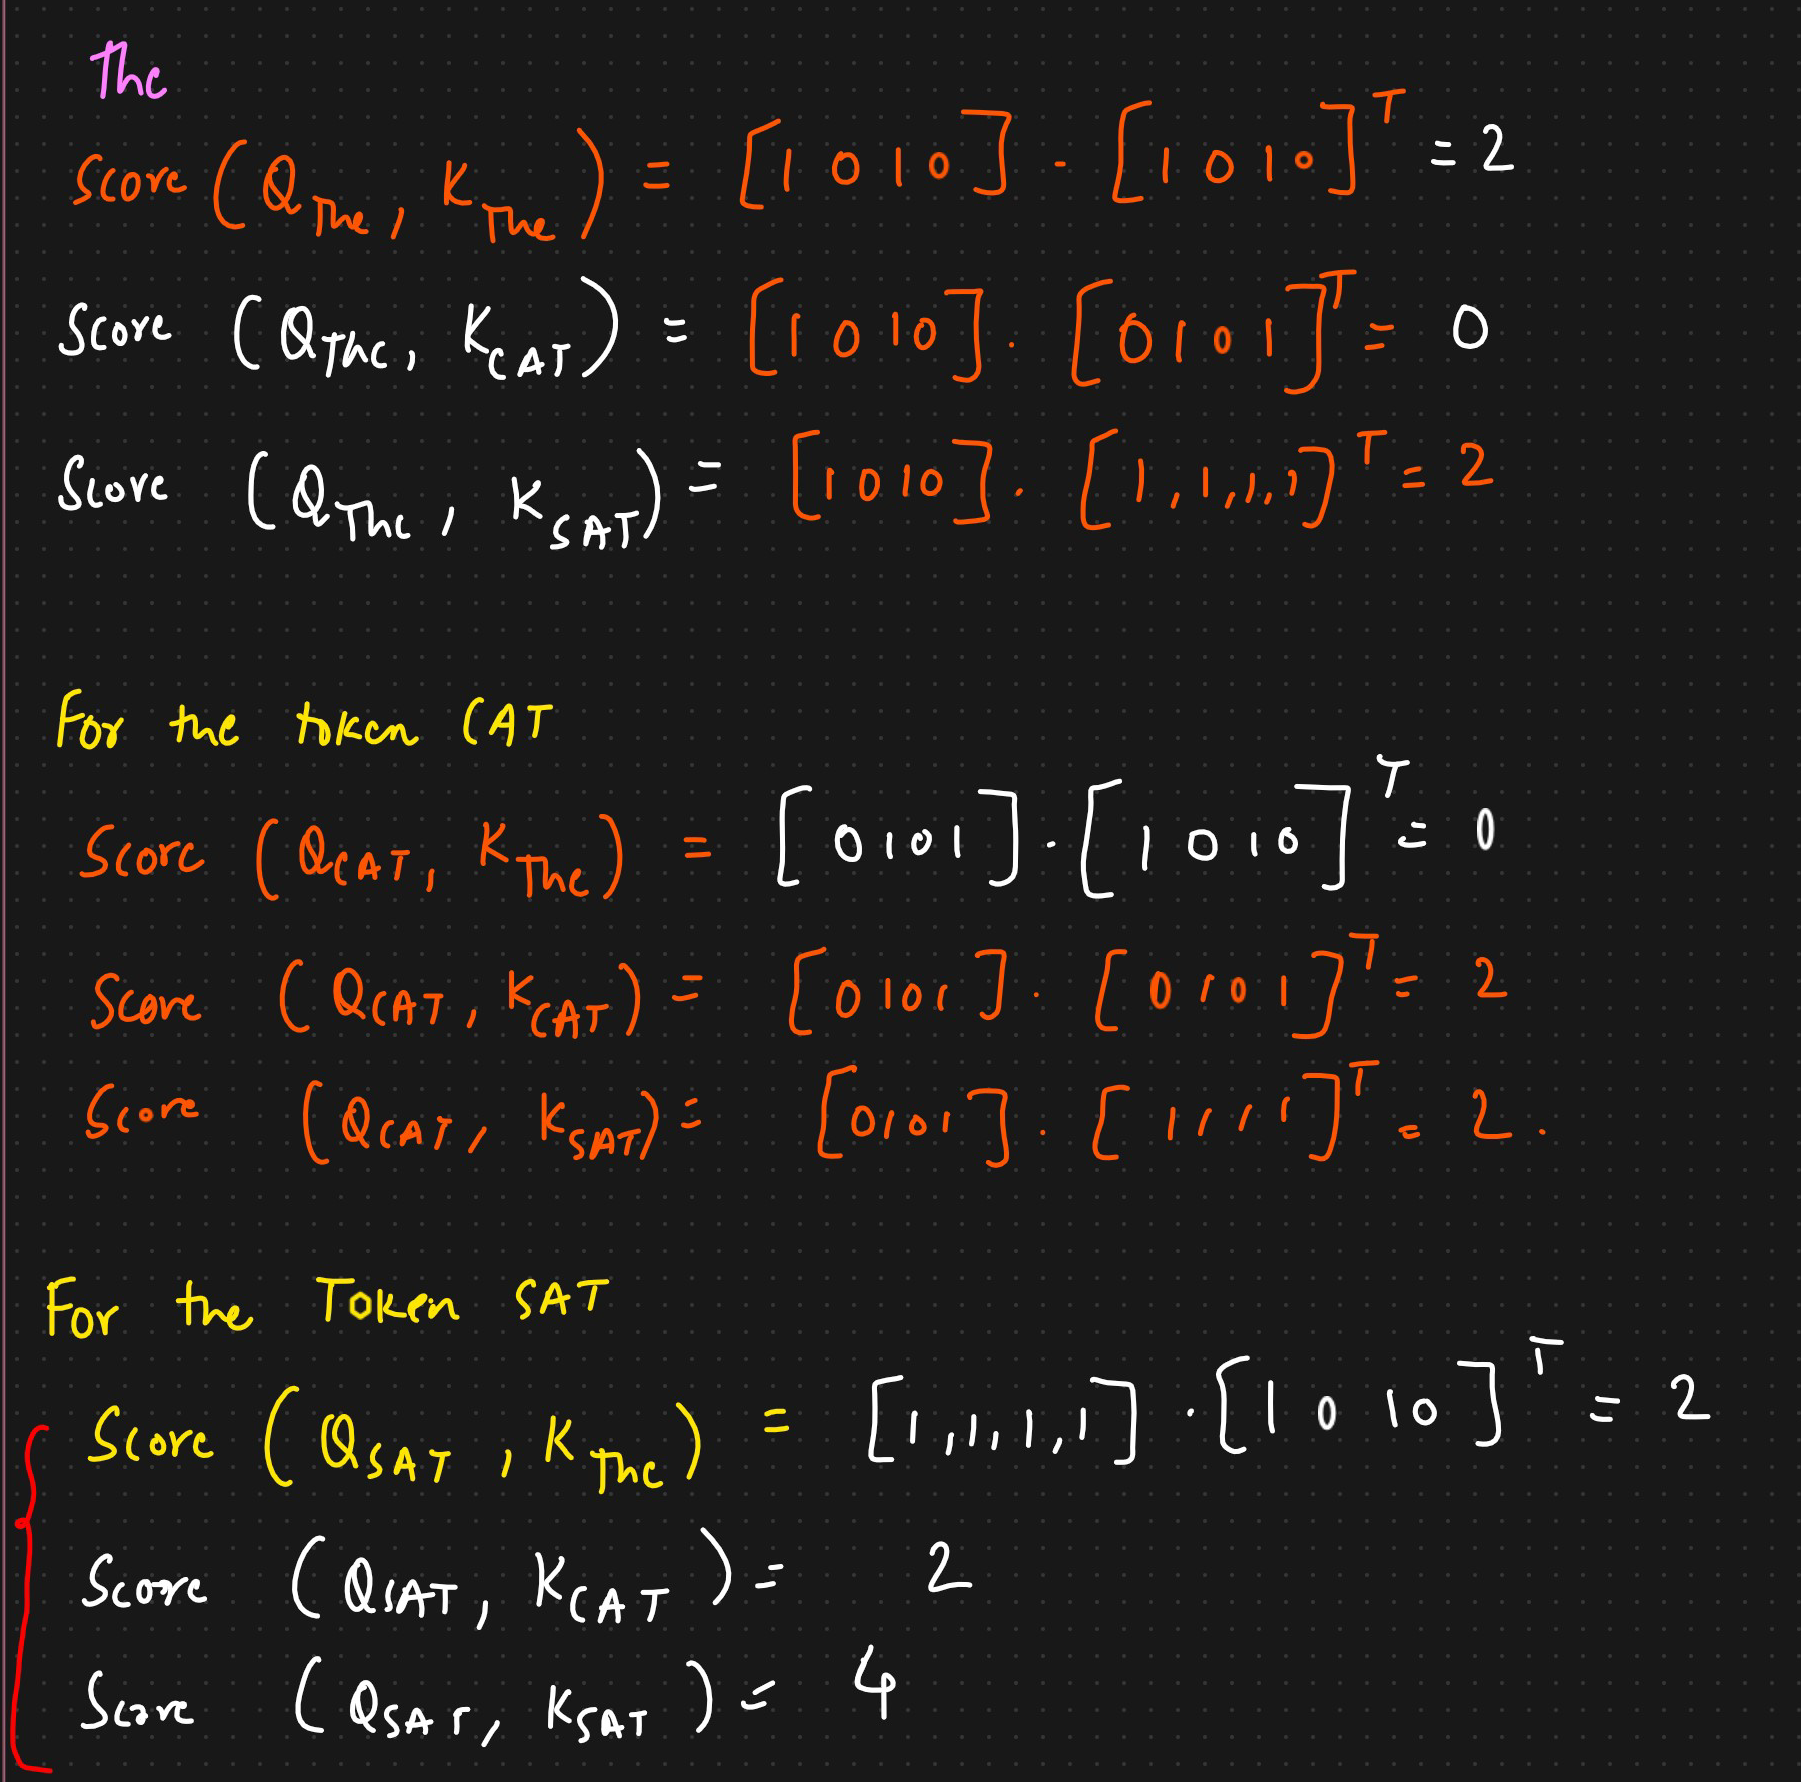 The
Score (Q_The, K_The) = [1 0 1 0] · [1 0 1 0]^T = 2
Score (Q_The, K_CAT) = [1 0 1 0] · [0 1 0 1]^T = 0
Score (Q_The, K_SAT) = [1 0 1 0] · [1, 1, 1, 1]^T = 2
For the token CAT
Score (Q_CAT, K_The) = [0 1 0 1] · [1 0 1 0]^T = 0
Score (Q_CAT, K_CAT) = [0 1 0 1] · [0 1 0 1]^T = 2
Score (Q_CAT, K_SAT) = [0 1 0 1] · [1 1 1 1]^T = 2.
For the Token SAT
Score (Q_SAT, K_The) = [1, 1, 1, 1] · [1 0 1 0]^T = 2
Score (Q_SAT, K_CAT) = 2
Score (Q_SAT, K_SAT) = 4